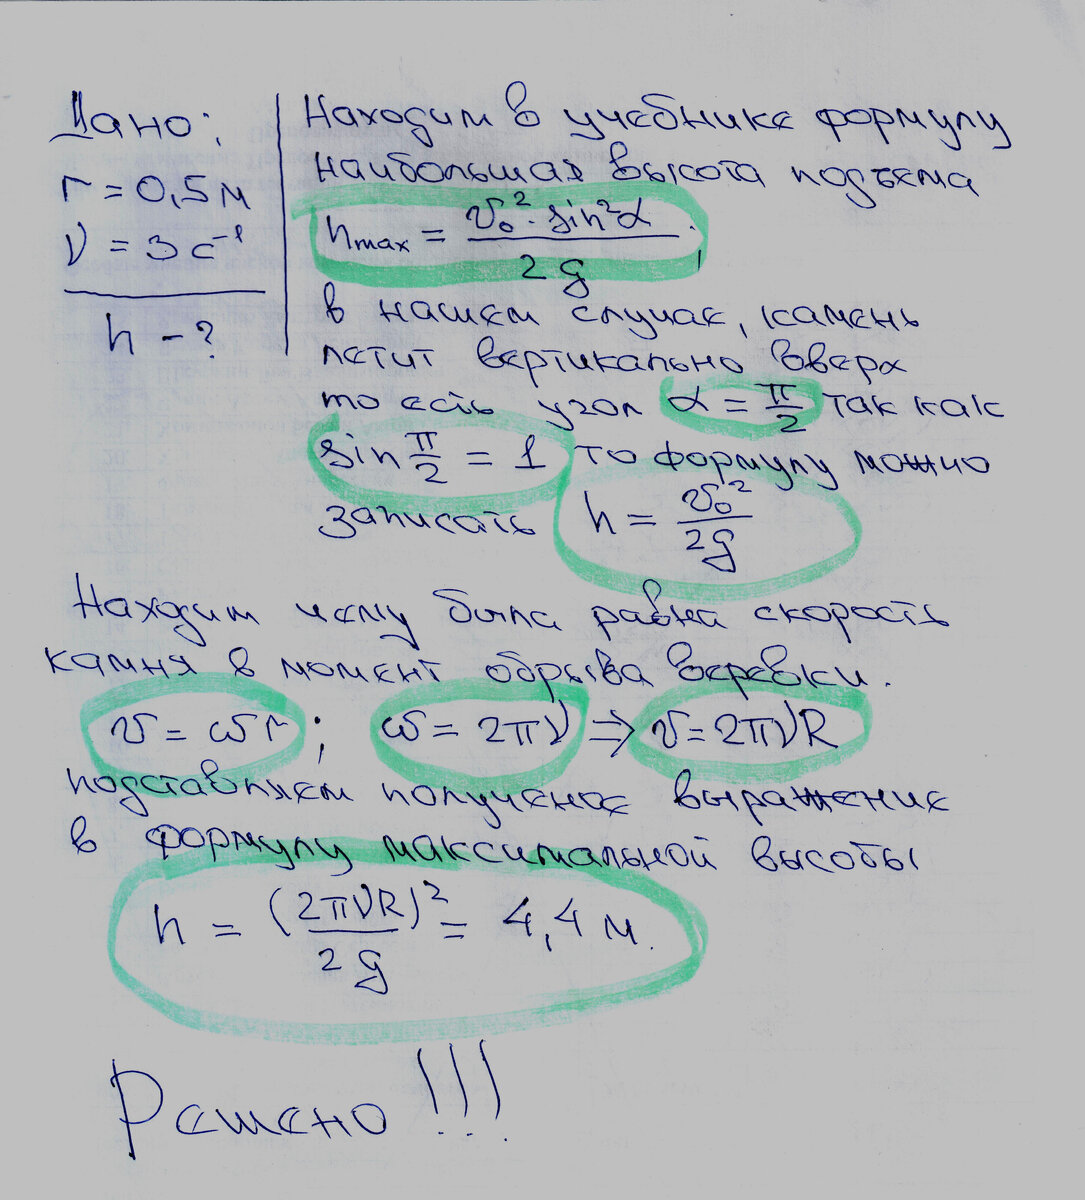 Дано:
r = 0,5 м
ν = 3 с⁻¹
h - ?
Находим в учебнике формулу
наибольшая высота подъема
hmax = v₀² · sin²α / 2g,
в нашем случае, камень
летит вертикально вверх
то есть угол α = π/2 так как
sin π/2 = 1 то формулу можно
записать h = v₀² / 2g
Находим чему была равна скорость
камня в момент обрыва веревки.
v = ωr; ω = 2πν ⇒ v = 2πνR
подставляем полученое выражение
в формулу максимальной высобы
h = (2πνR)² / 2g = 4,4 м.
Решено!!!